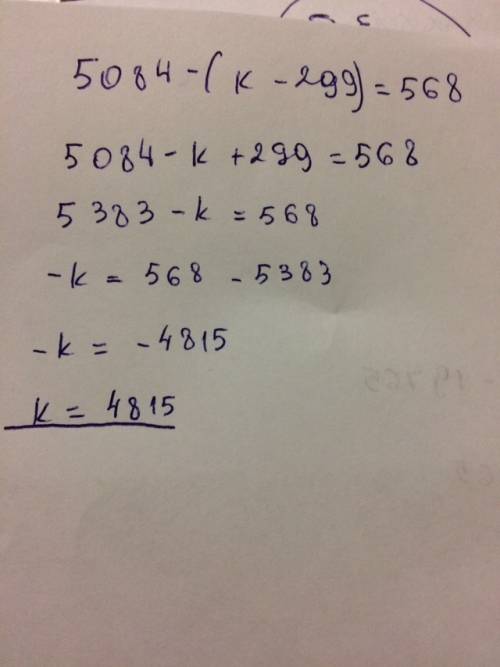 5084 - ( k - 299) = 568
5084 - k + 299 = 568
5383 - k = 568
-k = 568 - 5383
-k = -4815
k = 4815